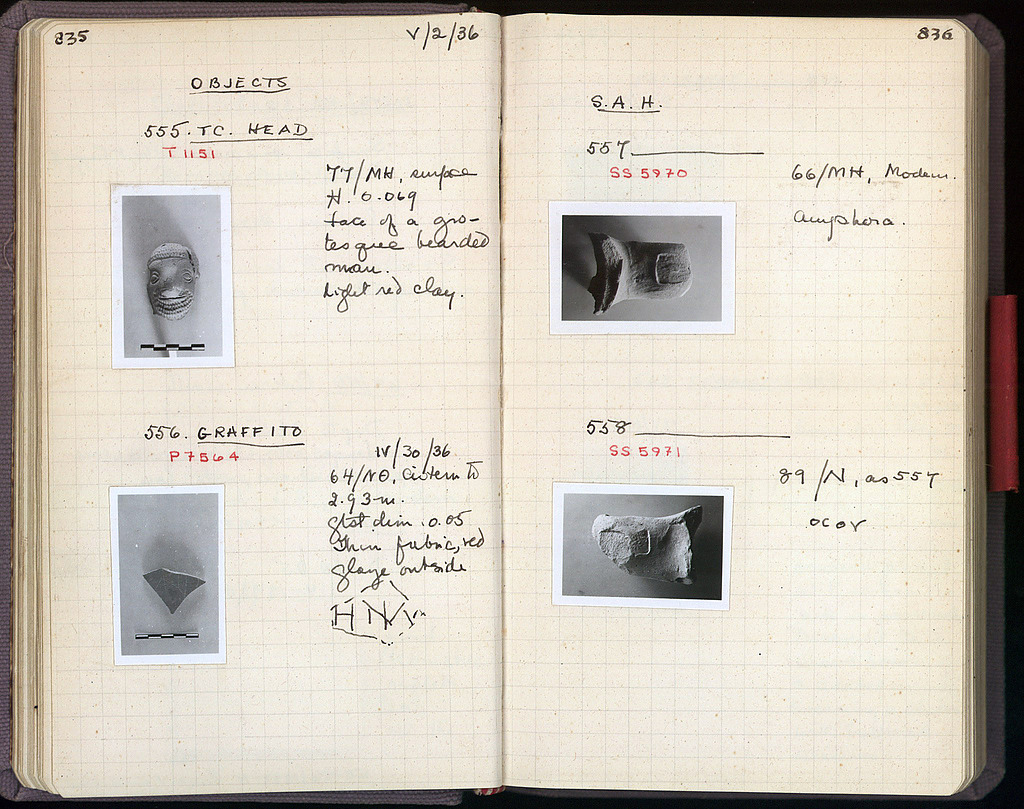 835
V/2/36
OBJECTS
555. TC. HEAD
T 1151
77/MH, surface
H. 0.069
face of a gro-
tesque bearded
man.
Light red clay.
556. GRAFFITO
P 7564
IV/30/36
64/ΝΘ, Cistern to
2.93 m.
gtst dim. 0.05
Thin fabric, red
glaze outside
HN
836
S.A.H.
557
SS 5970
66/MH, Modern.
Amphora.
558
SS 5971
89/N, as 557